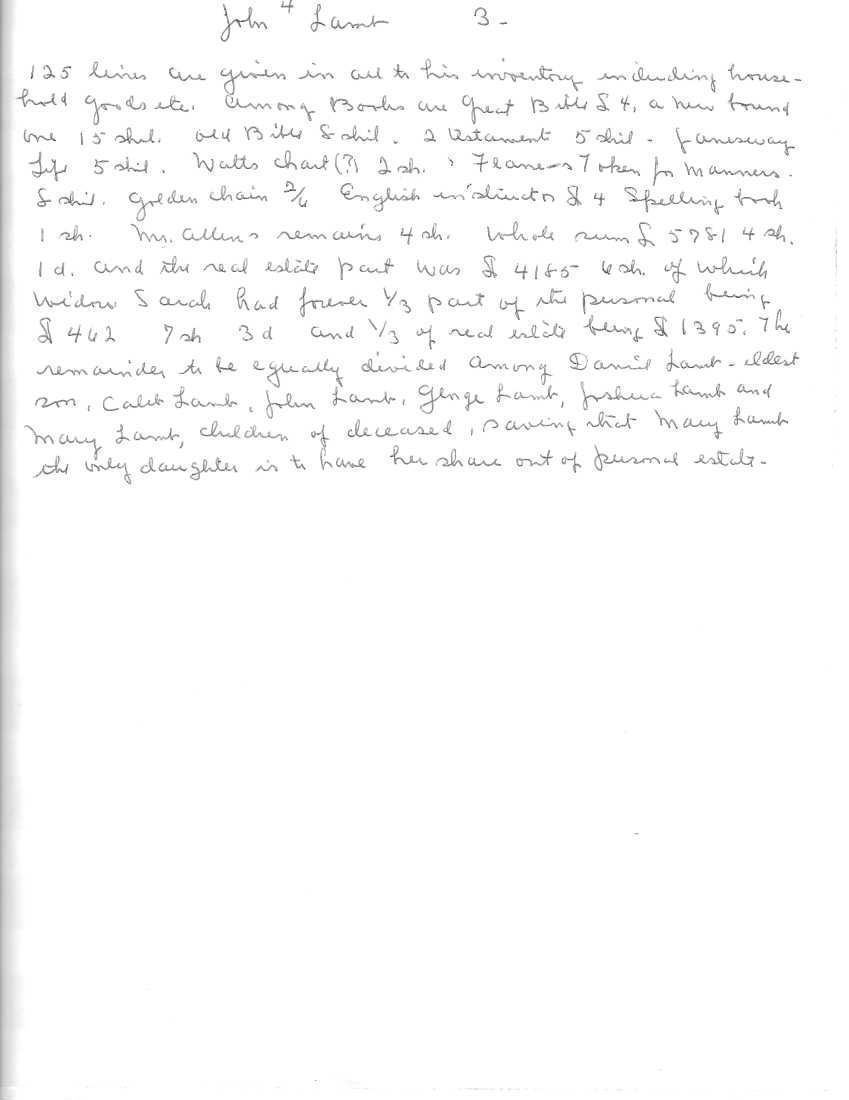 John 4 Lamb 3-
125 lines are given in all to his inventory including house-
hold goods etc. Among Books are Great Bible £ 4, a new bound
one 15 shil. old Bible 8 shil. 2 testament 5 shil - Janeway
Life 5 shil. Watts chart(?) 2 sh. Token for Manners.
8 shil. Golden chain 2/6 English instructor £ 4 Spelling book
1 sh. Mr. Allens remains 4 sh. Whole sum £ 5781 4 sh.
1 d. and the real estate part was £ 4185 6 sh. of which
Widow Sarah had forever 1/3 part of the personal being
£ 462 7 sh 3 d and 1/3 of real estate being £ 1395. The
remainder to be equally divided among Daniel Lamb - eldest
son, Caleb Lamb, John Lamb, George Lamb, Joshua Lamb and
Mary Lamb, children of deceased, saving that Mary Lamb
the only daughter is to have her share out of personal estate-